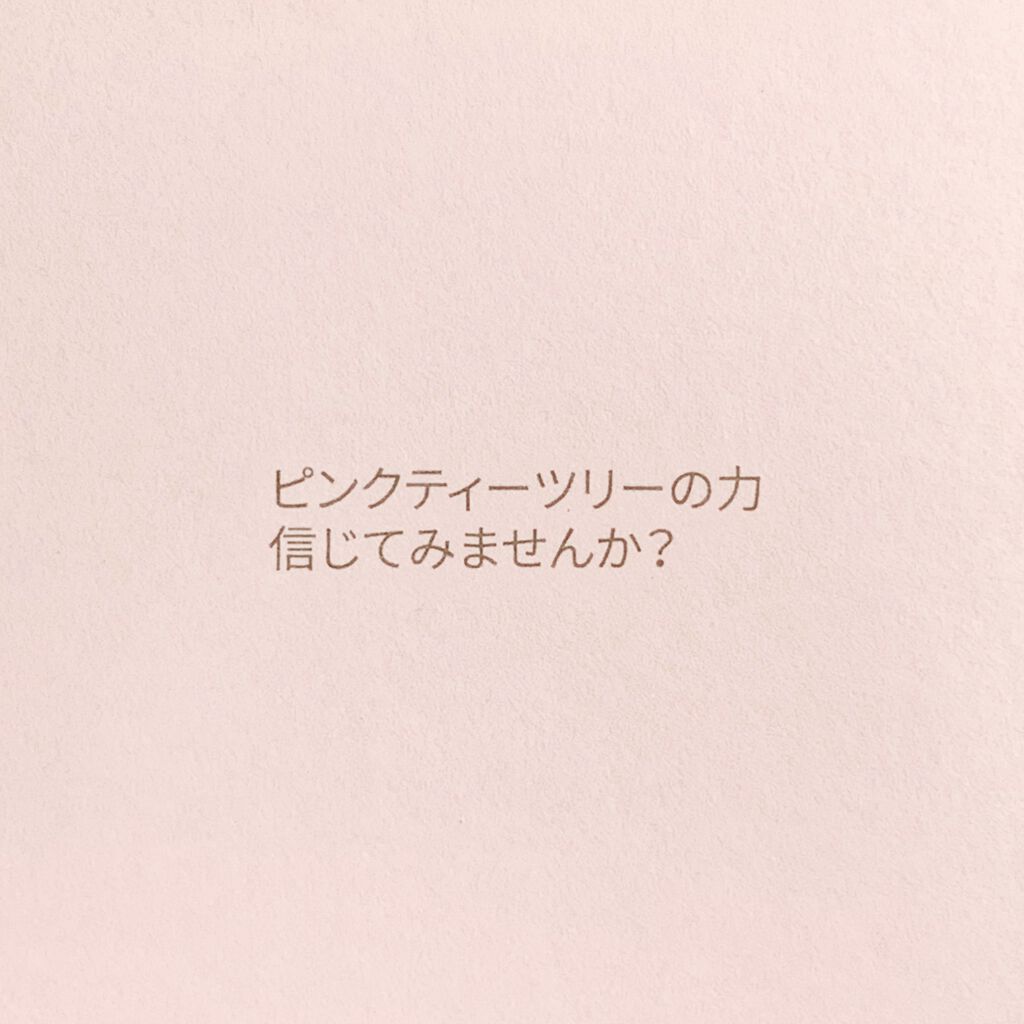 ピンクティーツリーの力
信じてみませんか？